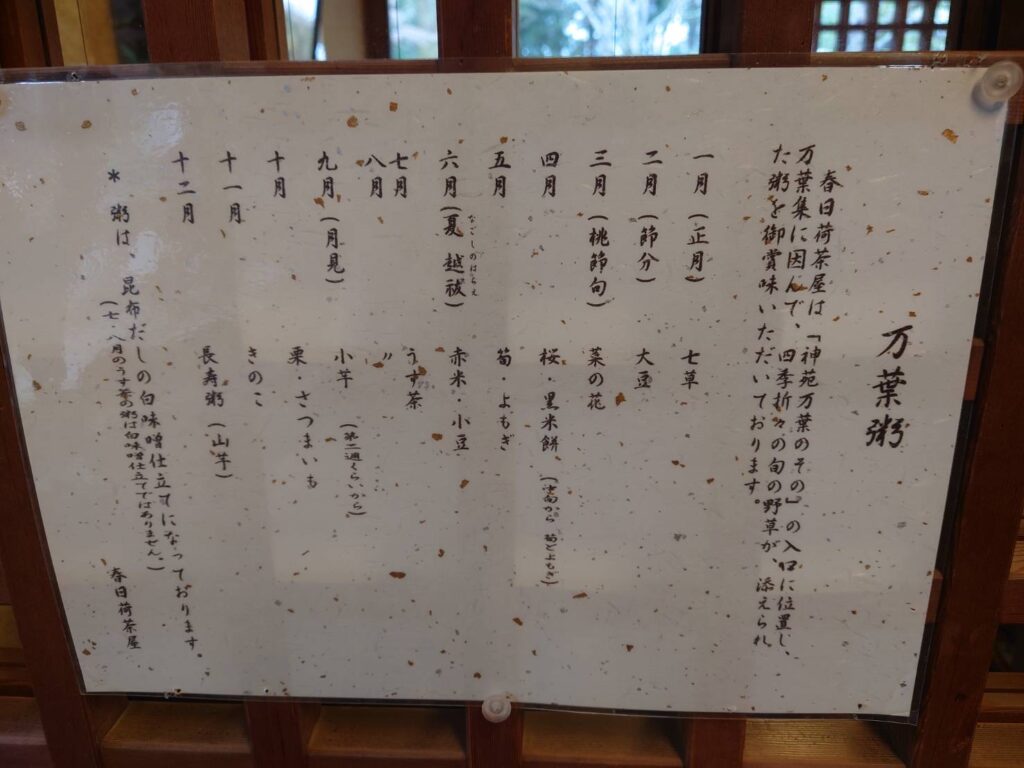 万葉粥
春日荷茶屋は「神苑万葉のその」の入口に位置し、
万葉集に因んで、四季折々の旬の野草が、添えられ
た粥を御賞味いただいております。
一月(正月) 七草
二月(節分) 大豆
三月(桃節句) 菜の花
四月 桜・黒米餅(中旬から 筍とよもぎ)
五月 筍・よもぎ
なごしのはらえ
六月(夏越祓) 赤米 小豆
七月 うす茶
八月 〃
九月(月見) 小芋(第二週くらいから)
十月 栗・さつまいも
十一月 きのこ
十二月 長寿粥(山芋)
* 粥は、昆布だしの白味噌仕立てになっております。
(七・八月のうす茶の粥は白味噌仕立てではありません。)
春日荷茶屋